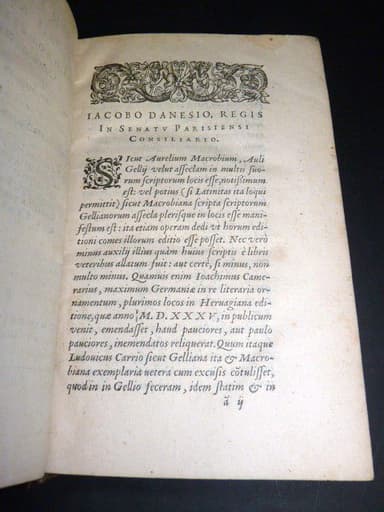 IACOBO DANESIO, REGIS
IN SENATV PARISIENSI
CONSILIARIO.
SIcut Aurelium Macrobium, Auli
Gellij velut asseclam in multis suo-
rum scriptorum locis esse, notissimum
est: vel potius (si Latinitas ita loqui
permittit) sicut Macrobiana scripta scriptorum
Gellianorum assecla plerisque in locis esse mani-
festum est: ita etiam operam dedi vt horum edi-
tioni comes illorum editio esse posset. Nec verò
minus auxilij illius quàm huius scriptis è libris
veteribus allatum fuit: aut certè, si minus, non
multo minus. Quamuis enim Ioachimus Came-
rarius, maximum Germaniæ in re literaria or-
namentum, plurimos locos in Heruagiana edi-
tione, quæ anno M.D.XXXV, in publicum
venit, emendasset, haud pauciores, aut paulo
pauciores, inemendatos reliquerat. Quum itaque
Ludouicus Carrio sicut Gelliana ita & Macro-
biana exemplaria vetera cum excusis cōtulisset,
quod in Gellio feceram, idem statim & in
ā ij